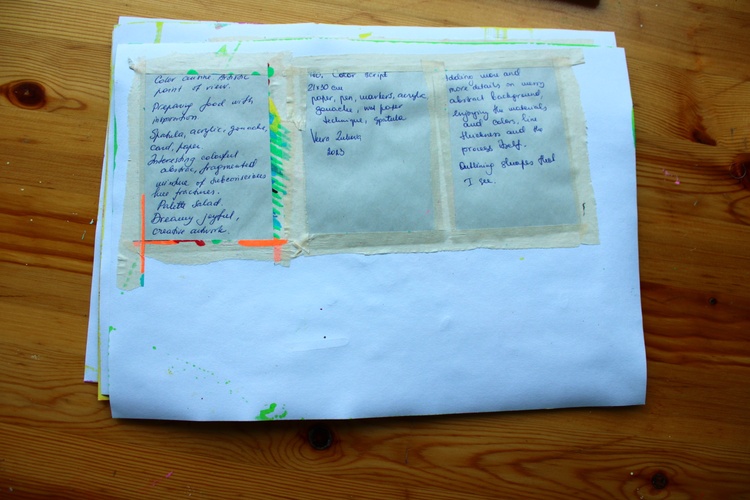 point of view.
Preparing food with
intention
Spatula, acrylic, gouache,
card, paper
Interesting colorful
abstract, fragmented
mixture of subconscious
line fractures.
Palette salad.
Dreamy, joyful,
creative artwork.
Color Script
21x30 cm
paper, pen, markers, acrylic
gouache, wet paper
technique, spatula
2023
Adding more and
more details on messy
abstract background,
enjoying the materials
and colors, line
thickness and the
process itself.
Outlining shapes that
I see.